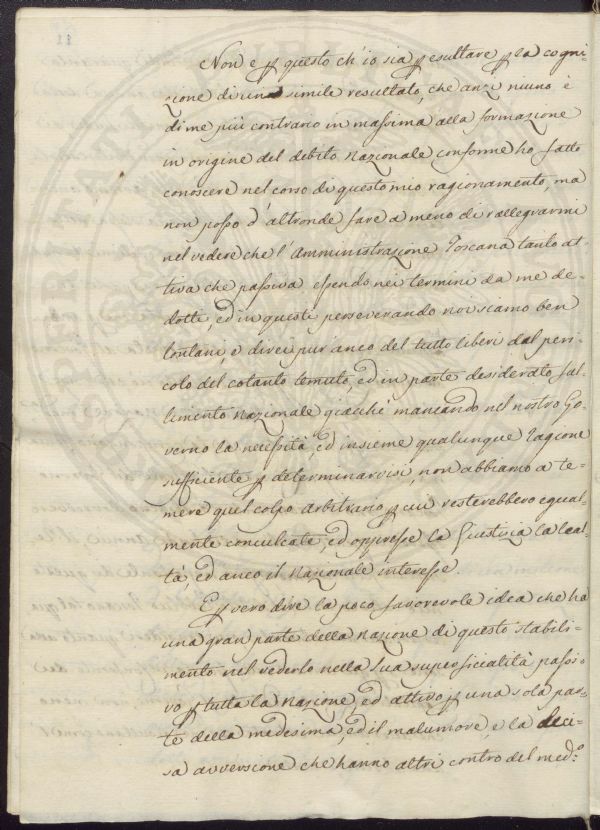 Non e ꝑ questo ch'io sia ꝑ esultare ꝑ la cogni-
zione di un simile resultato, che anzi niuno è
di me più contrario in massima alla formazione
in origine del debito Nazionale conforme ho fatto
conoscere nel corso di questo mio ragionamento, ma
non posso d'altronde fare a meno di rallegrarmi
nel vedere che l'Amministrazione Toscana tanto at-
tiva che passiva essendo nei termini da me de-
dotti, ed in questi perseverando noi siamo ben
lontani, e direi pur'anco del tutto liberi dal peri-
colo del cotanto temuto, ed in parte desiderato fal-
limento Nazionale giacchè mancando nel nostro Go-
verno la necessità, ed insieme qualunque ragione
sufficiente ꝑ determinarvisi, non abbiamo a te-
mere quel colpo arbitrario ꝑ cui resterebbero egual-
mente conculcate, ed oppresse la Giustizia la leal-
tà, ed anco il Nazionale interesse.
E ꝑ vero dire la poco favorevole idea che ha
una gran parte della Nazione di questo stabili-
mento nel vederlo nella sua superficialità passi-
vo ꝑ tutta la Nazione, ed attivo ꝑ una sola par-
te della medesima, ed il malumore, e la deci-
sa avversione che hanno altri contro del med.º